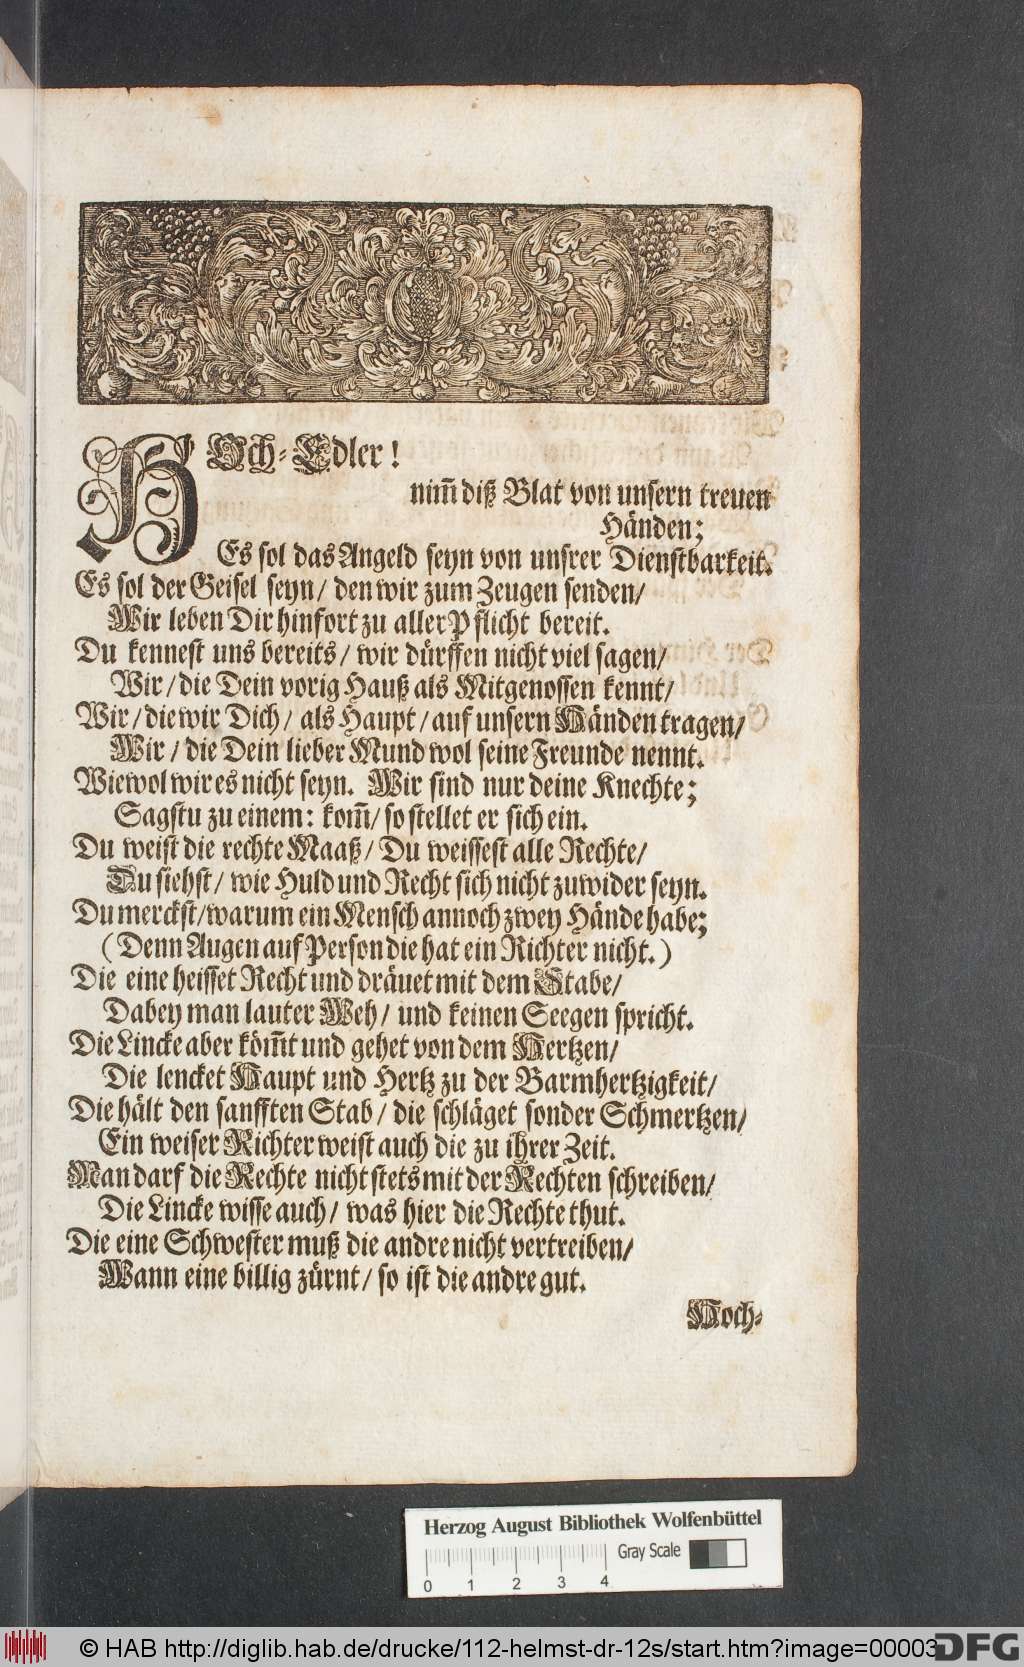 HOch-Edler!
nim̃ diß Blat von unsern treuen
Händen;
Es sol das Angeld seyn von unsrer Dienstbarkeit.
Es sol der Geisel seyn/ den wir zum Zeugen senden/
Wir leben Dir hinfort zu aller Pflicht bereit.
Du kennest uns bereits/ wir dürffen nicht viel sagen/
Wir/ die Dein vorig Hauß als Mitgenossen kennt/
Wir/ die wir Dich/ als Haupt/ auf unsern Händen tragen/
Wir/ die Dein lieber Mund wol seine Freunde nennt.
Wiewol wir es nicht seyn. Wir sind nur deine Knechte;
Sagstu zu einem: kom̃/ so stellet er sich ein.
Du weist die rechte Maaß/ Du weissest alle Rechte/
Du siehst/ wie Huld und Recht sich nicht zuwider seyn.
Du merckst/ warum ein Mensch annoch zwey Hände habe;
(Denn Augen auf Person die hat ein Richter nicht.)
Die eine heisset Recht und dräuet mit dem Stabe/
Dabey man lauter Weh/ und keinen Seegen spricht.
Die Lincke aber köm̃t und gehet von dem Hertzen/
Die lencket Haupt und Hertz zu der Barmhertzigkeit/
Die hält den sanfften Stab/ die schläget sonder Schmertzen/
Ein weiser Richter weist auch die zu ihrer Zeit.
Man darf die Rechte nicht stets mit der Rechten schreiben/
Die Lincke wisse auch/ was hier die Rechte thut.
Die eine Schwester muß die andre nicht vertreiben/
Wann eine billig zürnt/ so ist die andre gut.
Hoch-
Herzog August Bibliothek Wolfenbüttel
Gray Scale
0 1 2 3 4
© HAB http://diglib.hab.de/drucke/112-helmst-dr-12s/start.htm?image=00003
DFG